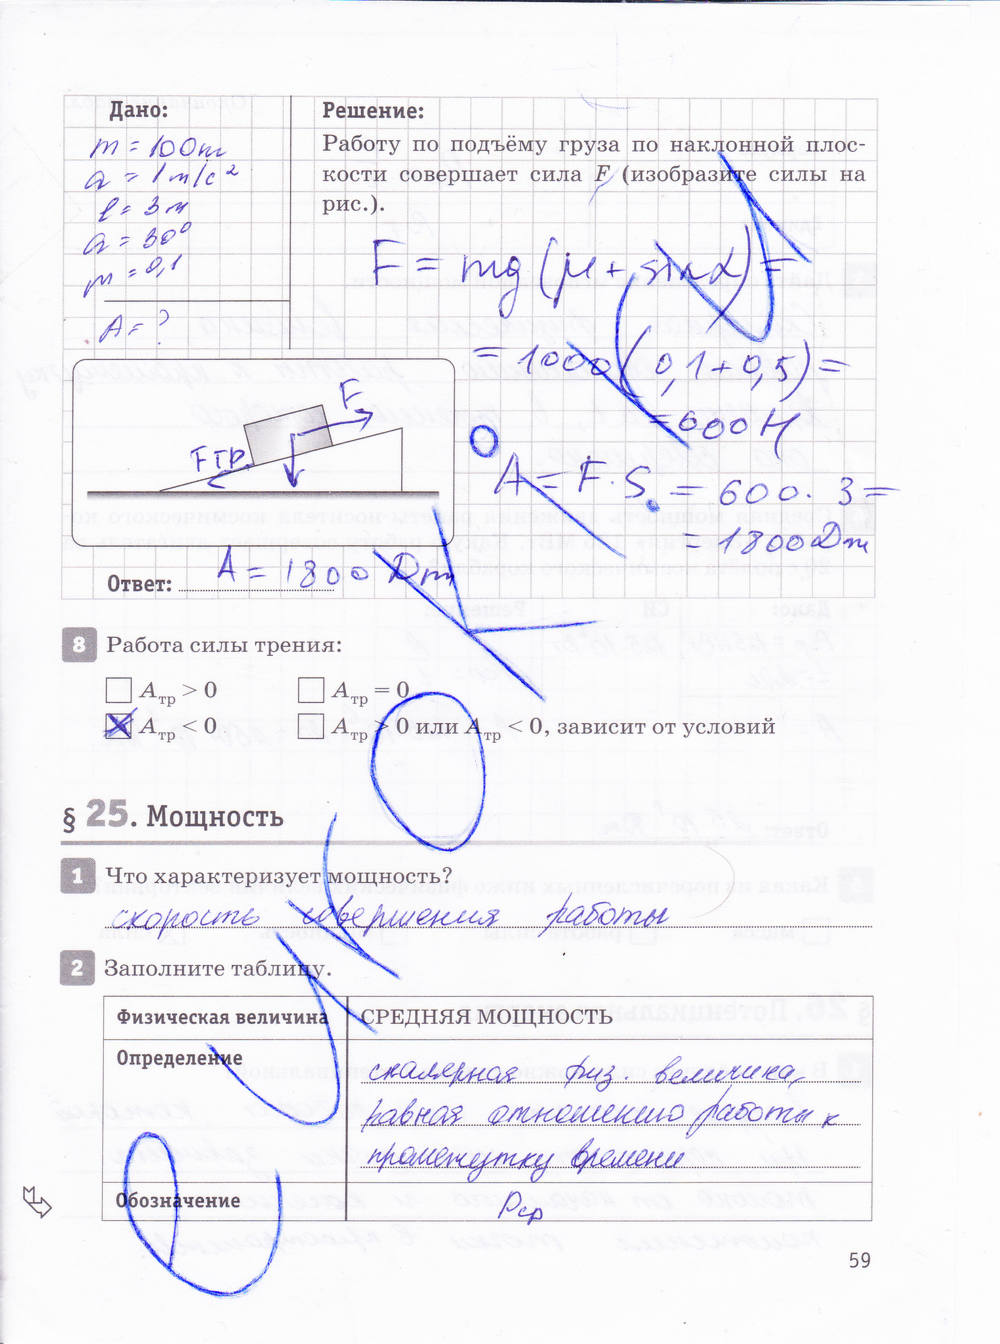 Дано:
m = 100т
a = 1 m/c²
l = 3 м
a = 30°
m = 0,1
A = ?
Решение:
Работу по подъёму груза по наклонной плос-
кости совершает сила F (изобразите силы на
рис.).
F = mg(μ + sin α) =
= 1000(0,1 + 0,5) =
= 600 Н
A = F · S. = 600 · 3 =
= 1800 Дт
F
Fтр.
Ответ: A = 1800 Дт
8 Работа силы трения:
Aтр > 0
Aтр = 0
Aтр < 0
Aтр > 0 или Aтр < 0, зависит от условий
§ 25. Мощность
1 Что характеризует мощность?
скорость совершения работы
2 Заполните таблицу.
Физическая величина СРЕДНЯЯ МОЩНОСТЬ
Определение
скалярная физ. величина,
равная отношению работы к
промежутку времени
Обозначение Pср
59